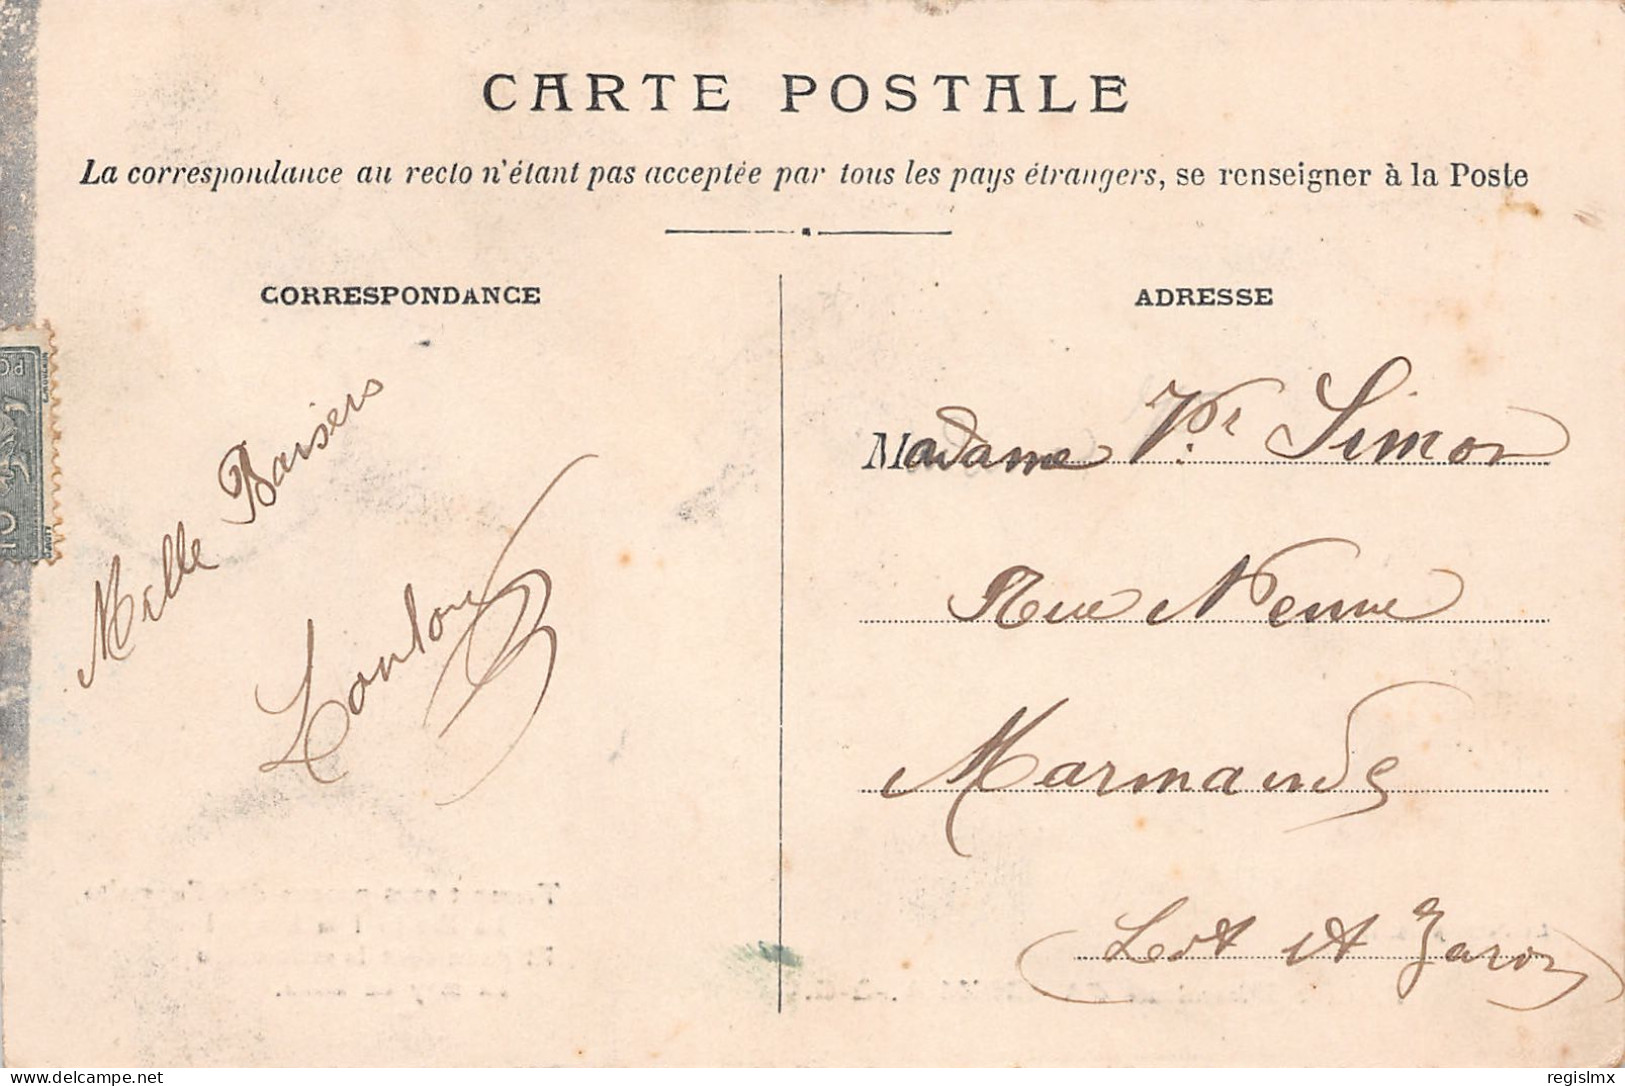 CARTE POSTALE
La correspondance au recto n'étant pas acceptée par tous les pays étrangers, se renseigner à la Poste
CORRESPONDANCE
Mille Baisers
Loulou
ADRESSE
Madame Vve Simon
Rue Neuve
Marmande
(Lot et Garon)
delcampe.net
regislmx